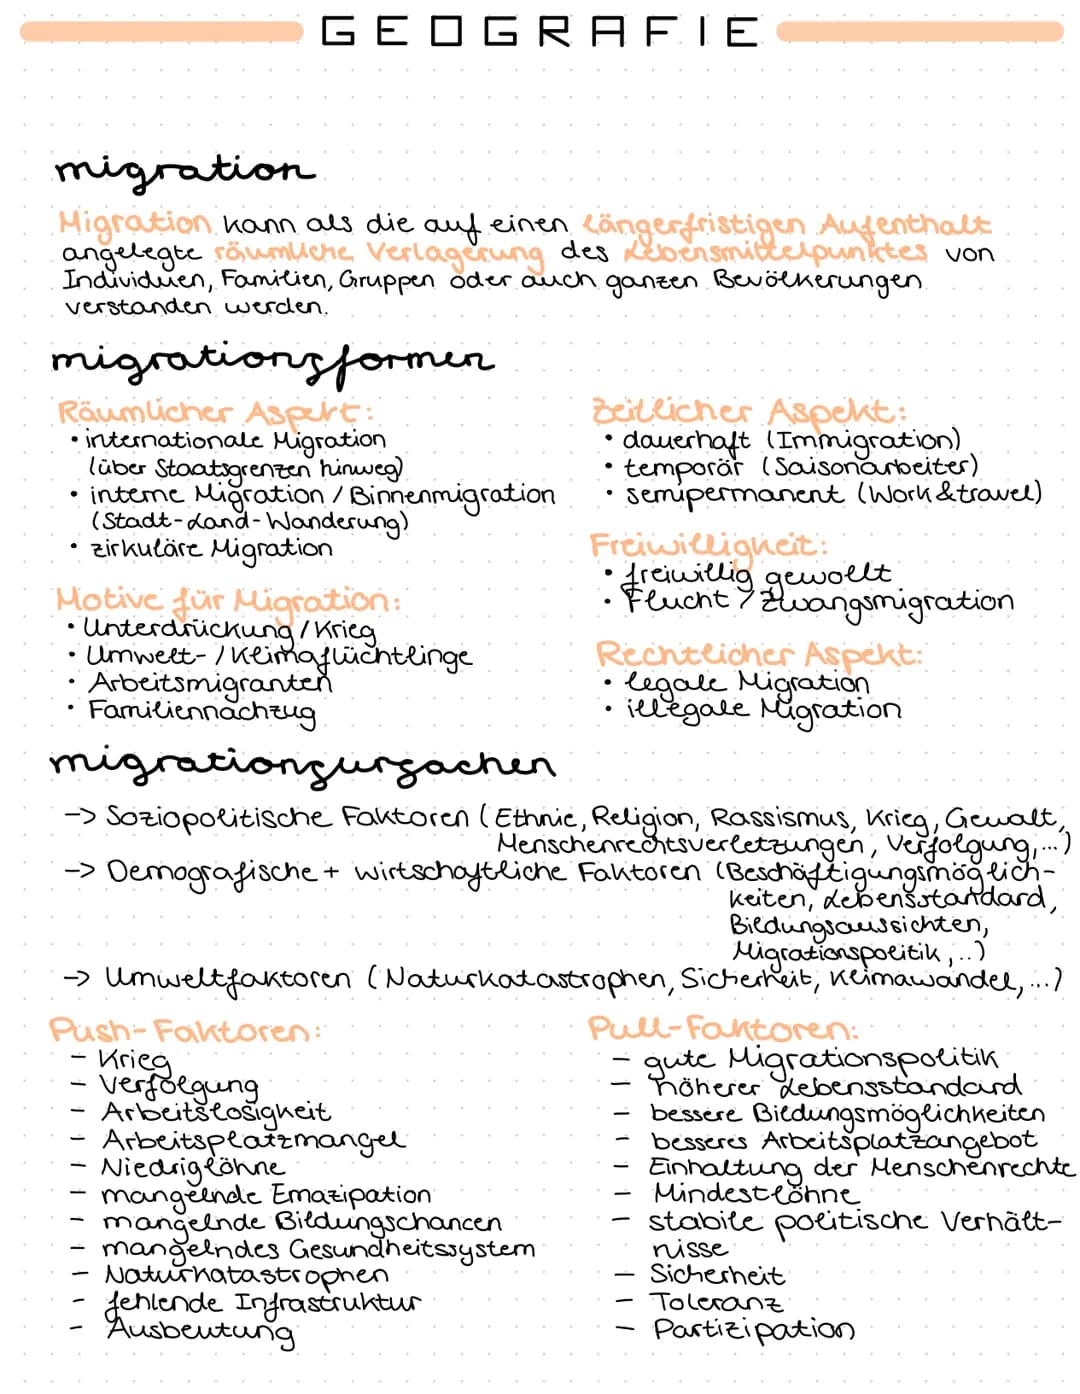 GEOGRAFIE
migration
Migration kann als die auf einen längerfristigen Aufenthalt
angelegte räumliche Verlagerung des Lebensmittelpunktes von
Individuen, Familien, Gruppen oder auch ganzen Bevölkerungen
verstanden werden.
migrationsformen
Räumlicher Aspekt:
• internationale Migration
(über Staatsgrenzen hinweg)
• interne Migration / Binnenmigration
(Stadt-Land-Wanderung)
• zirkuläre Migration
Motive für Migration:
• Unterdrückung / Krieg
• Umwelt- / Klimaflüchtlinge
• Arbeitsmigranten
• Familiennachzug
Zeitlicher Aspekt:
• dauerhaft (Immigration)
• temporär (Saisonarbeiter)
• semipermanent (Work & travel)
Freiwilligkeit:
• freiwillig gewollt
• Flucht / Zwangsmigration
Rechtlicher Aspekt:
• legale Migration
• illegale Migration
migrationsursachen
-> Soziopolitische Faktoren (Ethnie, Religion, Rassismus, Krieg, Gewalt,
Menschenrechtsverletzungen, Verfolgung,...)
-> Demografische + wirtschaftliche Faktoren (Beschäftigungsmöglich-
keiten, Lebensstandard,
Bildungsaussichten,
Migrationspolitik,..)
-> Umweltfaktoren (Naturkatastrophen, Sicherheit, Klimawandel,...)
Push-Faktoren:
- Krieg
- Verfolgung
- Arbeitslosigkeit
- Arbeitsplatzmangel
- Niedriglöhne
- mangelnde Emazipation
- mangelnde Bildungschancen
- mangelndes Gesundheitssystem
- Naturkatastrophen
- fehlende Infrastruktur
- Ausbeutung
Pull-Faktoren:
- gute Migrationspolitik
- höherer Lebensstandard
- bessere Bildungsmöglichkeiten
- besseres Arbeitsplatzangebot
- Einhaltung der Menschenrechte
- Mindestlöhne
- stabile politische Verhält-
nisse
- Sicherheit
- Toleranz
- Partizipation